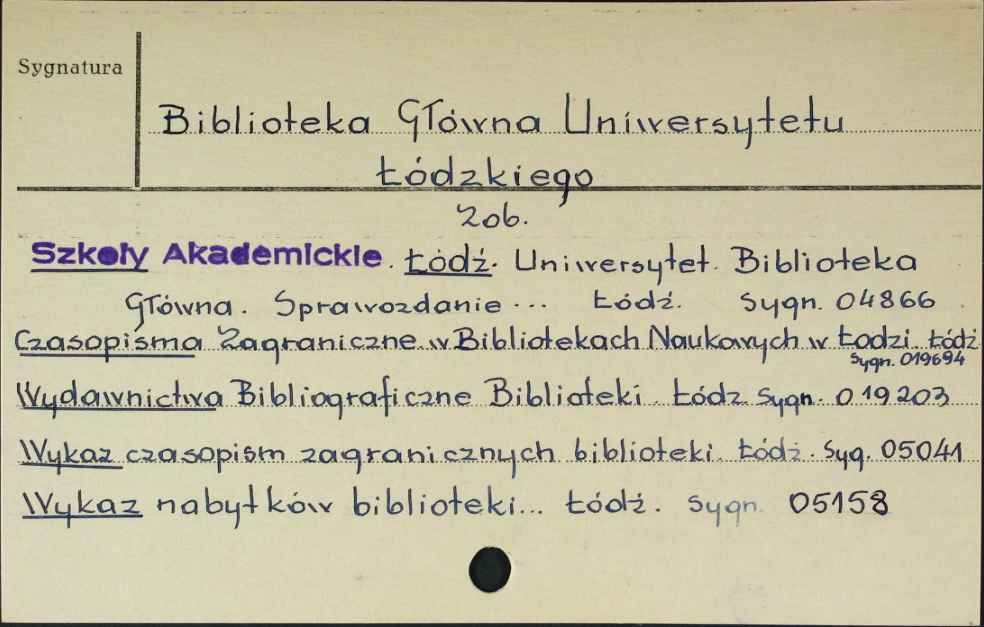 Sygnatura
Biblioteka Główna Uniwersytetu
Łódzkiego
Zob.
Szkoły Akademickie. Łódź. Uniwersytet. Biblioteka
Główna. Sprawozdanie ... Łódź. Sygn. 04866
Czasopisma Zagraniczne w Bibliotekach Naukowych w Łodzi. Łódź
Sygn. 019694
Wydawnictwa Bibliograficzne Biblioteki. Łódz Sygn. 019203
Wykaz czasopism zagranicznych biblioteki. Łódź. Syg. 05041
Wykaz nabytków biblioteki... Łódź. Sygn. 05158